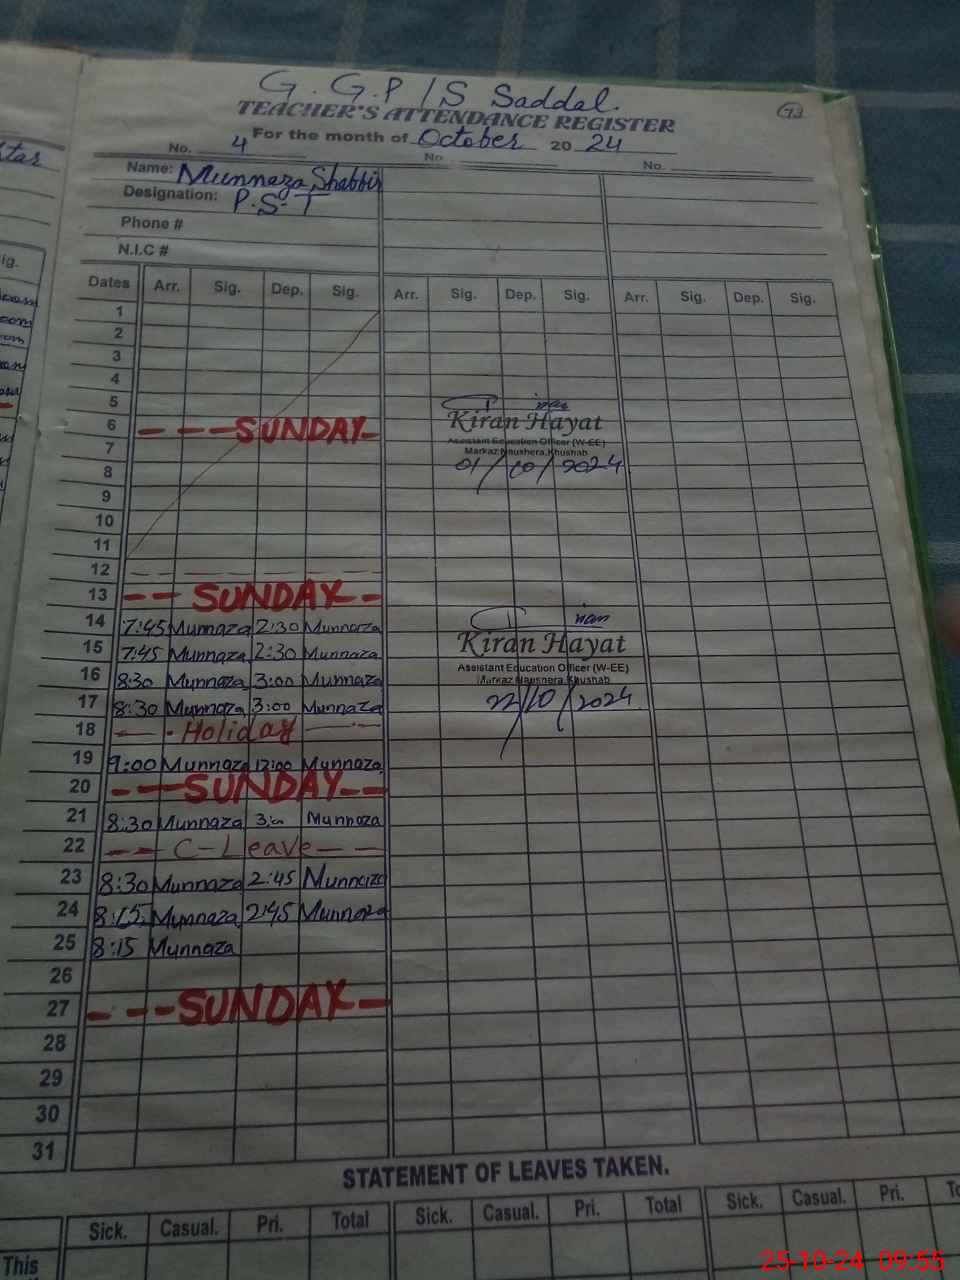 G.G.P/S Saddal.
93
TEACHER'S ATTENDANCE REGISTER
For the month of October 2024
No. 4 No. No.
Name: Munnaza Shabbir
Designation: P.S.T
Phone #
N.I.C #
Dates Arr. Sig. Dep. Sig. Arr. Sig. Dep. Sig. Arr. Sig. Dep. Sig.
1
2
3
4
5
6 - - - SUNDAY -
Kiran Hayat
Assistant Education Officer (W-EE)
Markaz Naushera, Khushab
01/10/2024
7
8
9
10
11
12
13 - - SUNDAY - -
14 7:45 Munnaza 2:30 Munnaza
15 7:45 Munnaza 2:30 Munnaza
16 8:30 Munnaza 3:00 Munnaza
17 8:30 Munnaza 3:00 Munnaza
Kiran Hayat
Assistant Education Officer (W-EE)
Markaz Naushera, Khushab
22/10/2024
18 - - Holiday - -
19 9:00 Munnaza 12:00 Munnaza
20 - - SUNDAY - -
21 8:30 Munnaza 3:00 Munnaza
22 - - C-Leave - -
23 8:30 Munnaza 2:45 Munnaza
24 8:15 Munnaza 2:45 Munnaza
25 8:15 Munnaza
26
27 - - - SUNDAY -
28
29
30
31
STATEMENT OF LEAVES TAKEN.
Sick. Casual. Pri. Total Sick. Casual. Pri. Total Sick. Casual. Pri.
This
25-10-24 09:55